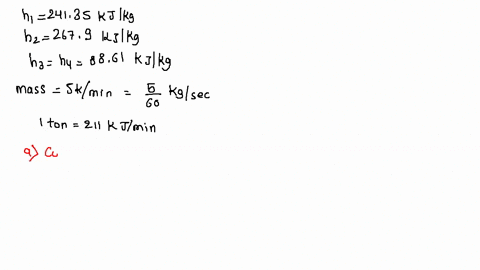 h1 = 241.35 kJ/kg
h2 = 267.9 kJ/kg
h3 = h4 = 88.61 kJ/kg
mass = 5k/min = 5/60 kg/sec
1 ton = 211 kJ/min
a) Co